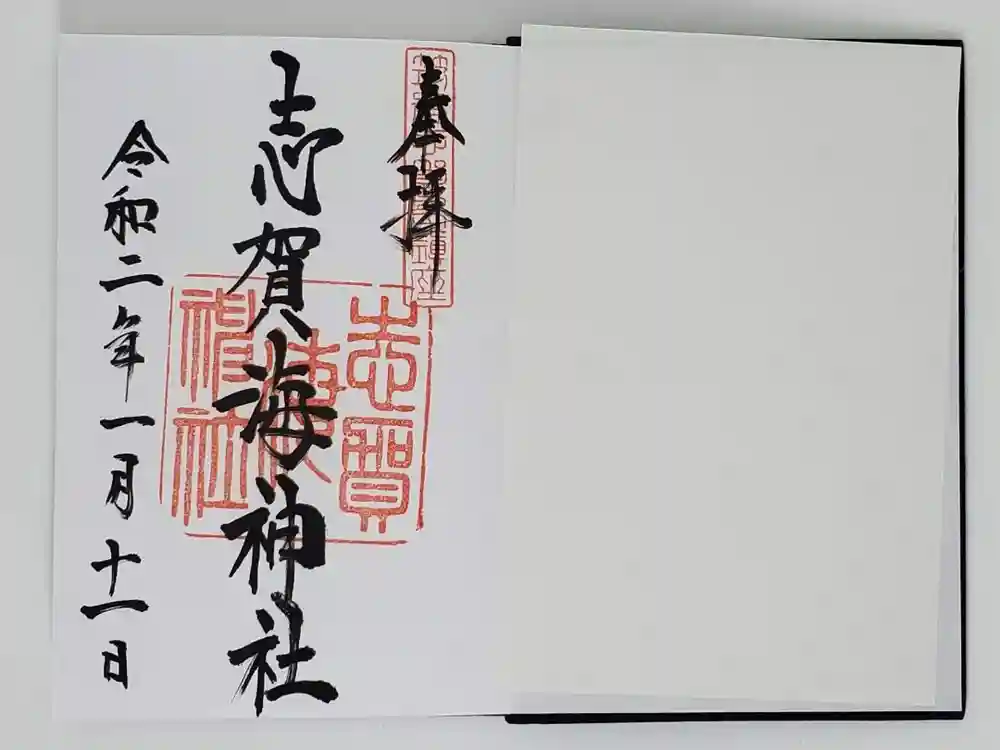 奉拝
志賀海神社
令和二年一月十一日
志賀
海
神社